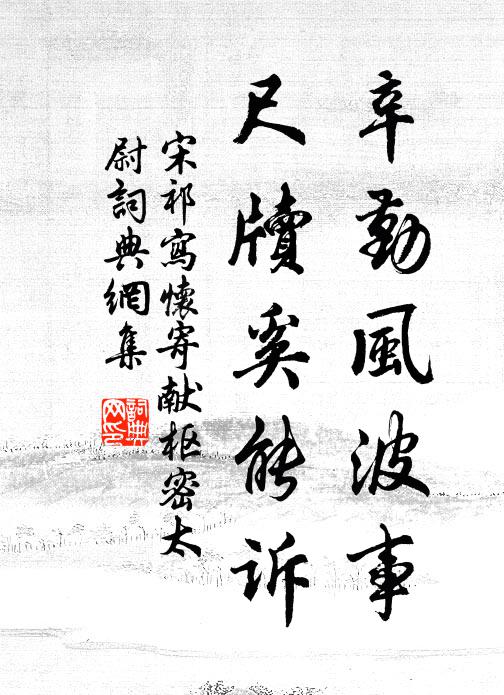 辛勤風波事
尺牘奚能訴
宋祁寫懷寄献枢密太
尉詞典網集
詞典
网印